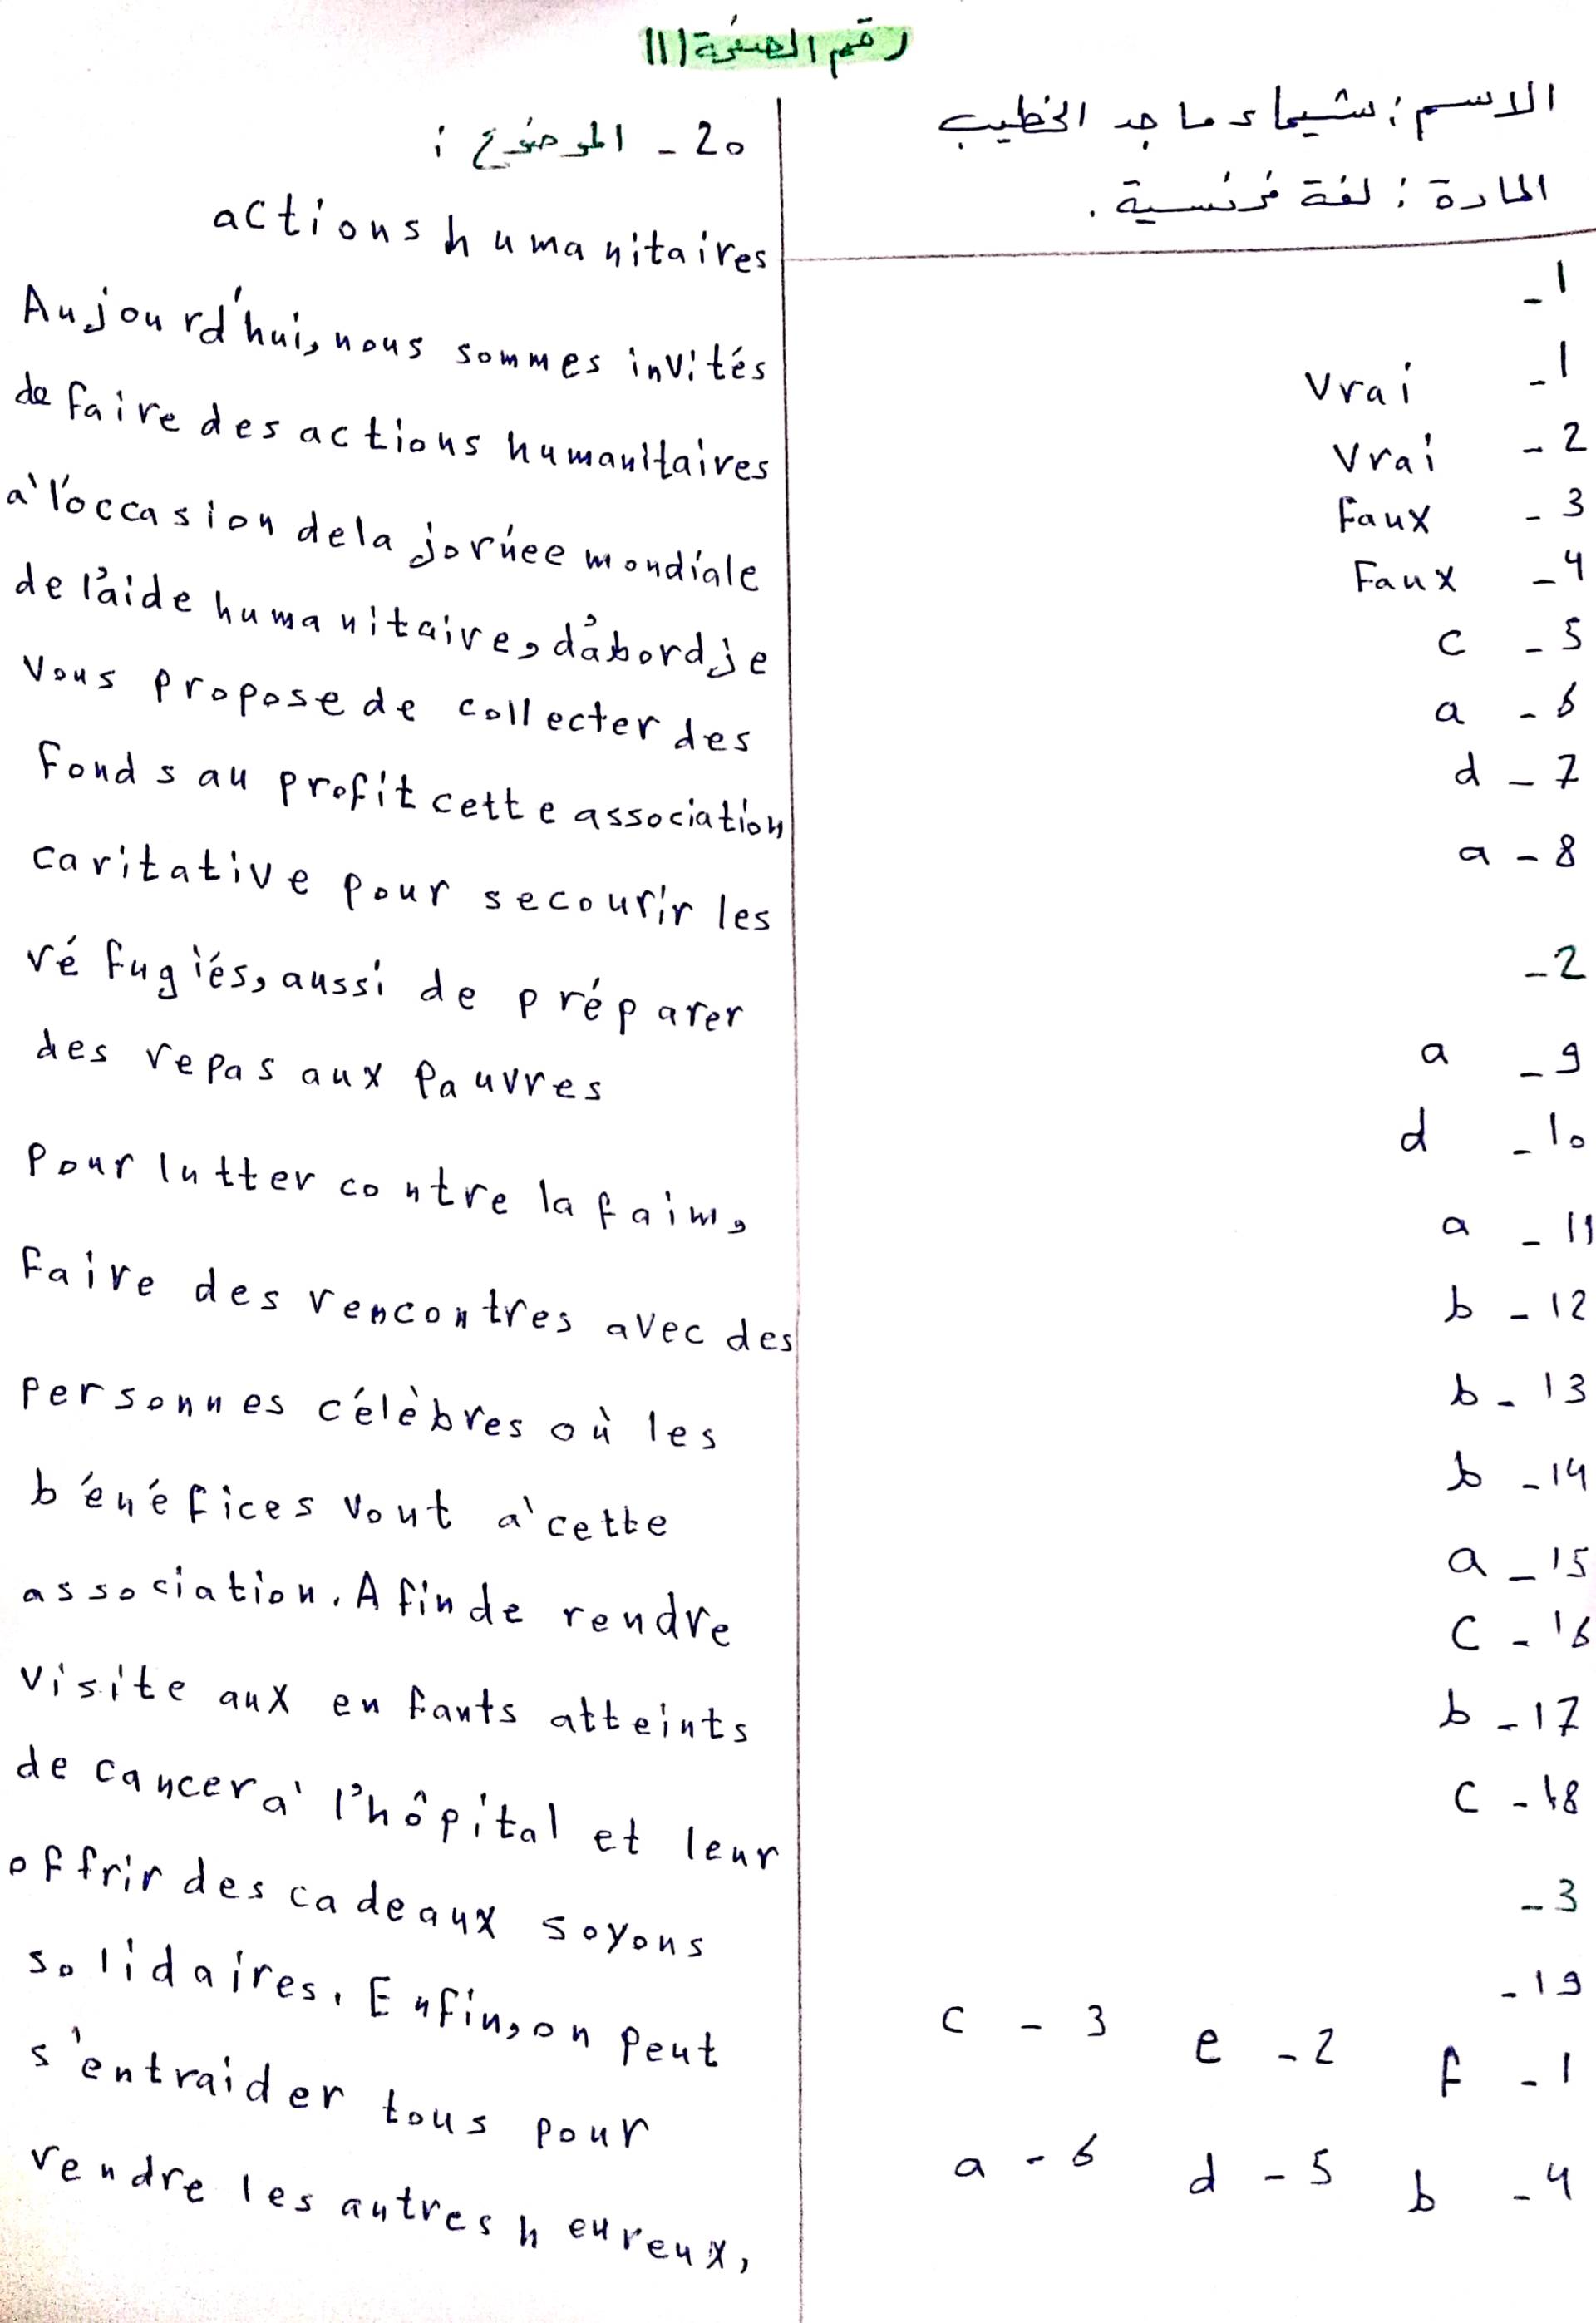 رقم الصفحة (1)
الاسم: شيماء ماجد الخطيب
المادة: لغة فرنسية.
1-
1- Vrai
2- Vrai
3- Faux
4- Faux
5- c
6- a
7- d
8- a
2-
9- a
10- d
11- a
12- b
13- b
14- b
15- a
16- c
17- b
18- c
3-
19-
1- f 2- e 3- c
4- b 5- d 6- a
20- الموضوع:
actions humanitaires
Aujourd'hui, nous sommes invités
de faire des actions humanitaires
à l'occasion de la jornée mondiale
de l'aide humanitaire, d'abord je
vous propose de collecter des
fonds au profit cette association
caritative pour secourir les
réfugiés, aussi de préparer
des repas aux pauvres
pour lutter contre la faim,
faire des rencontres avec des
personnes célèbres où les
bénéfices vont à cette
association. Afin de rendre
visite aux enfants atteints
de cancer à l'hôpital et leur
offrir des cadeaux soyons
solidaires. Enfin, on peut
s'entraider tous pour
rendre les autres heureux,